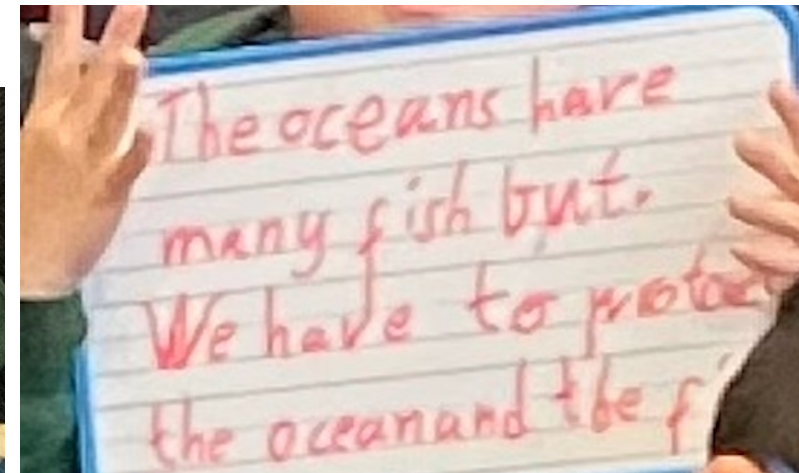 The oceans have
many fish but.
We have to protec
the oceanand the f